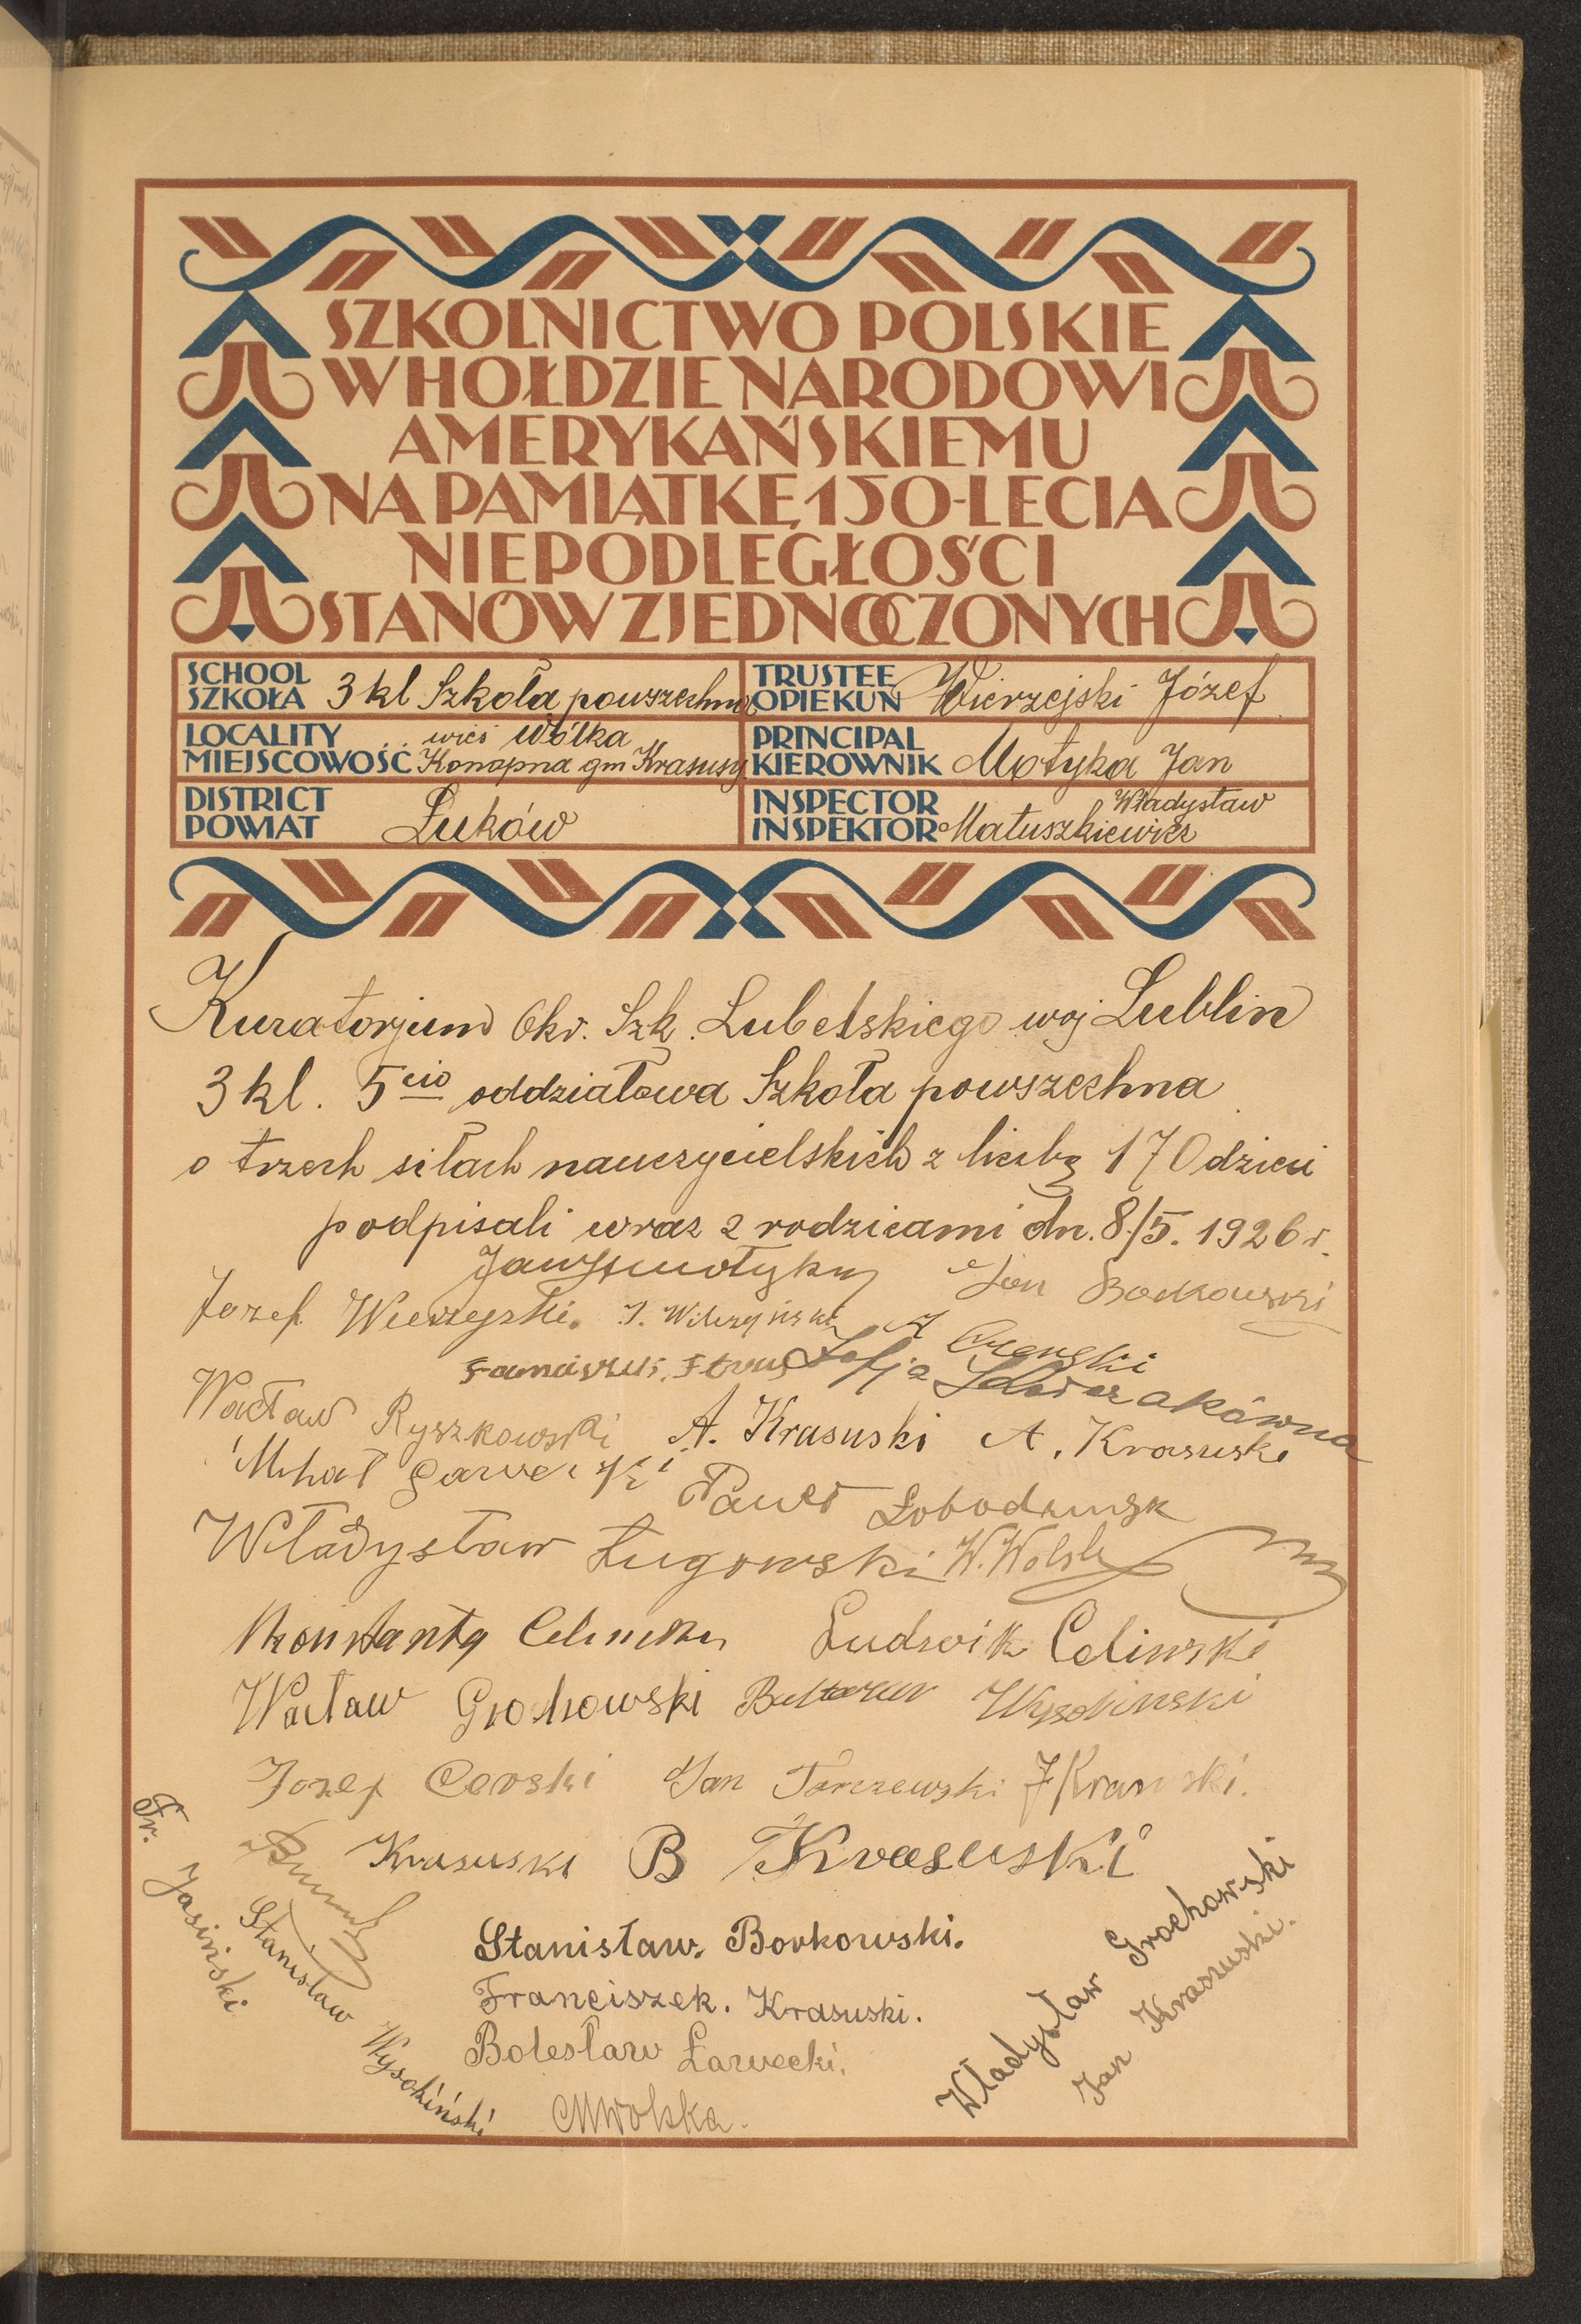 SZKOLNICTWO POLSKIE
W HOŁDZIE NARODOWI
AMERYKAŃSKIEMU
NA PAMIĄTKĘ 150-LECIA
NIEPODLEGŁOŚCI
STANÓW ZJEDNOCZONYCH
SCHOOL
SZKOŁA 3 kl Szkoła powszechna
TRUSTEE
OPIEKUN Wierzejski Józef
LOCALITY
MIEJSCOWOŚĆ wieś Wólka
Konopna gm Krasusy
PRINCIPAL
KIEROWNIK Motyka Jan
DISTRICT
POWIAT Łuków
INSPECTOR
INSPEKTOR Władysław
Matuszkiewicz
Kuratorjum Okr. Szk. Lubelskiego woj Lublin
3 kl. 5cio oddziałowa Szkoła powszechna
o trzech siłach nauczycielskich z liczbą 170 dzieci
podpisali wraz z rodzicami dn. 8/5. 1926 r.
Jan Motyka Jan
Józef Wierzejski. J.
Zofja
Wacław Ryszkowski A. Krasuski A. Krasuski
Paweł
Władysław Ługowski W.
Ludwik Celinski
Wacław Grochowski
Józef Jan
Krasuski B Krasuski
Fr. Jasiński
Stanisław Wysokiński
Stanisław. Borkowski.
Franciszek. Krasuski.
Bolesław Zarzecki.
MWolska.
Władysław Grochowski
Jan Kraszuski.